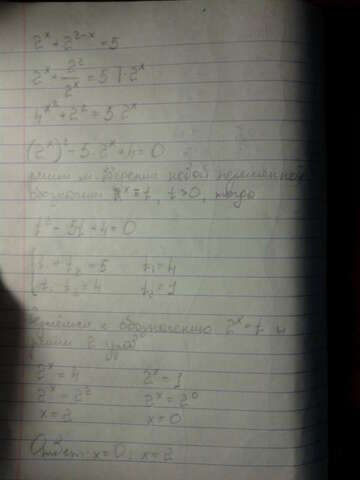 2^x + 2^{2-x} = 5
2^x + 2^2/2^x = 5 | · 2^x
4^{x^2} + 2^2 = 5 · 2^x
(2^x)^2 - 5 · 2^x + 4 = 0
новой переменной
2^x = t, t > 0, тогда
t^2 - 5t + 4 = 0
t_1 + t_2 = 5 t_1 = 4
t_1 · t_2 = 4 t_2 = 1
к обозначению 2^x = t и
2
2^x = 4 2^x = 1
2^x = 2^2 2^x = 2^0
x = 2 x = 0
Ответ: x = 0; x = 2